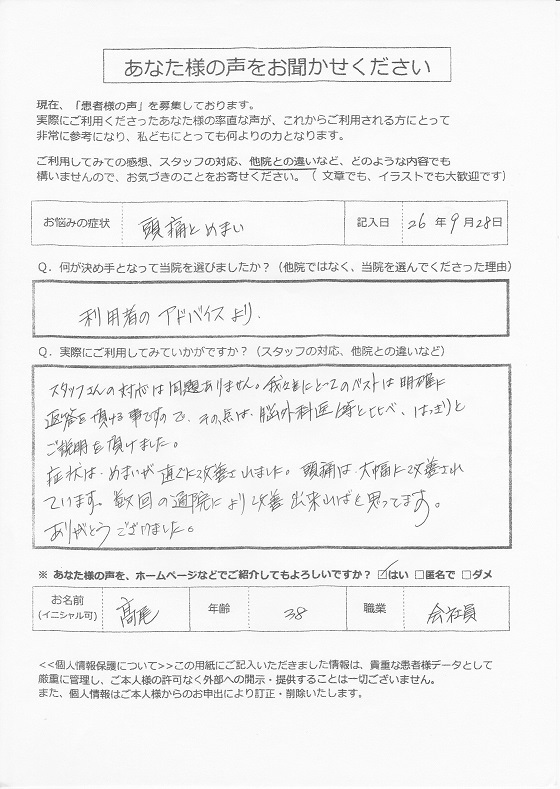 あなた様の声をお聞かせください
現在、「患者様の声」を募集しております。
実際にご利用くださったあなた様の率直な声が、これからご利用される方にとって
非常に参考になり、私どもにとっても何よりの力となります。
ご利用してみての感想、スタッフの対応、他院との違いなど、どのような内容でも
構いませんので、お気づきのことをお寄せください。（ 文章でも、イラストでも大歓迎です）
お悩みの症状 頭痛とめまい 記入日 26 年 9 月 28 日
Q. 何が決め手となって当院を選びましたか？（他院ではなく、当院を選んでくださった理由）
利用者の アドバイスより.
Q. 実際にご利用してみていかがですか？（スタッフの対応、他院との違いなど）
スタッフさんの対応は問題ありません。我々にとってのベストは明確に
返答を頂ける事ですので、その点は、脳外科医等と比べ、はっきりと
ご説明を頂けました。
症状は、めまいが直ぐに改善されました。頭痛は、大幅に改善され
ています。数回の通院により改善出来ればと思ってます。
ありがとうございました。
※ あなた様の声を、ホームページなどでご紹介してもよろしいですか？ ☑はい □匿名で □ダメ
お名前 髙尾 年齢 38 職業 会社員
(イニシャル可)
<<個人情報保護について>>この用紙にご記入いただきました情報は、貴重な患者様データとして
厳重に管理し、ご本人様の許可なく外部への開示・提供することは一切ございません。
また、個人情報はご本人様からのお申出により訂正・削除いたします。